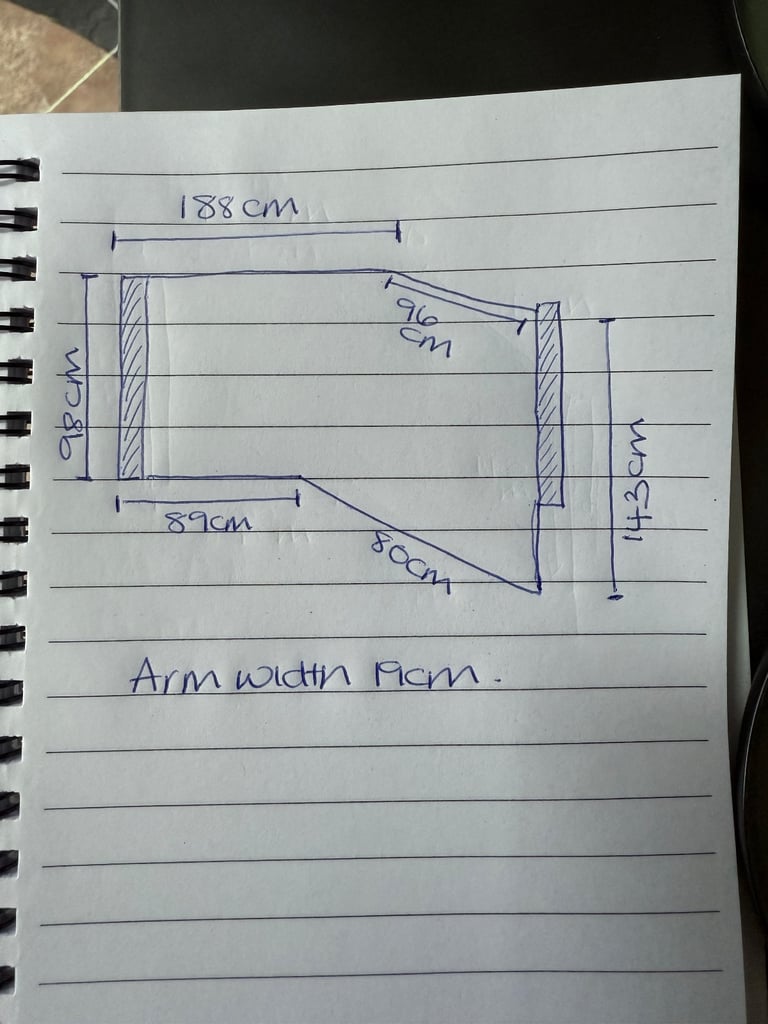 188cm
96
cm
98cm
89cm
80cm
143cm
Arm width 19cm.